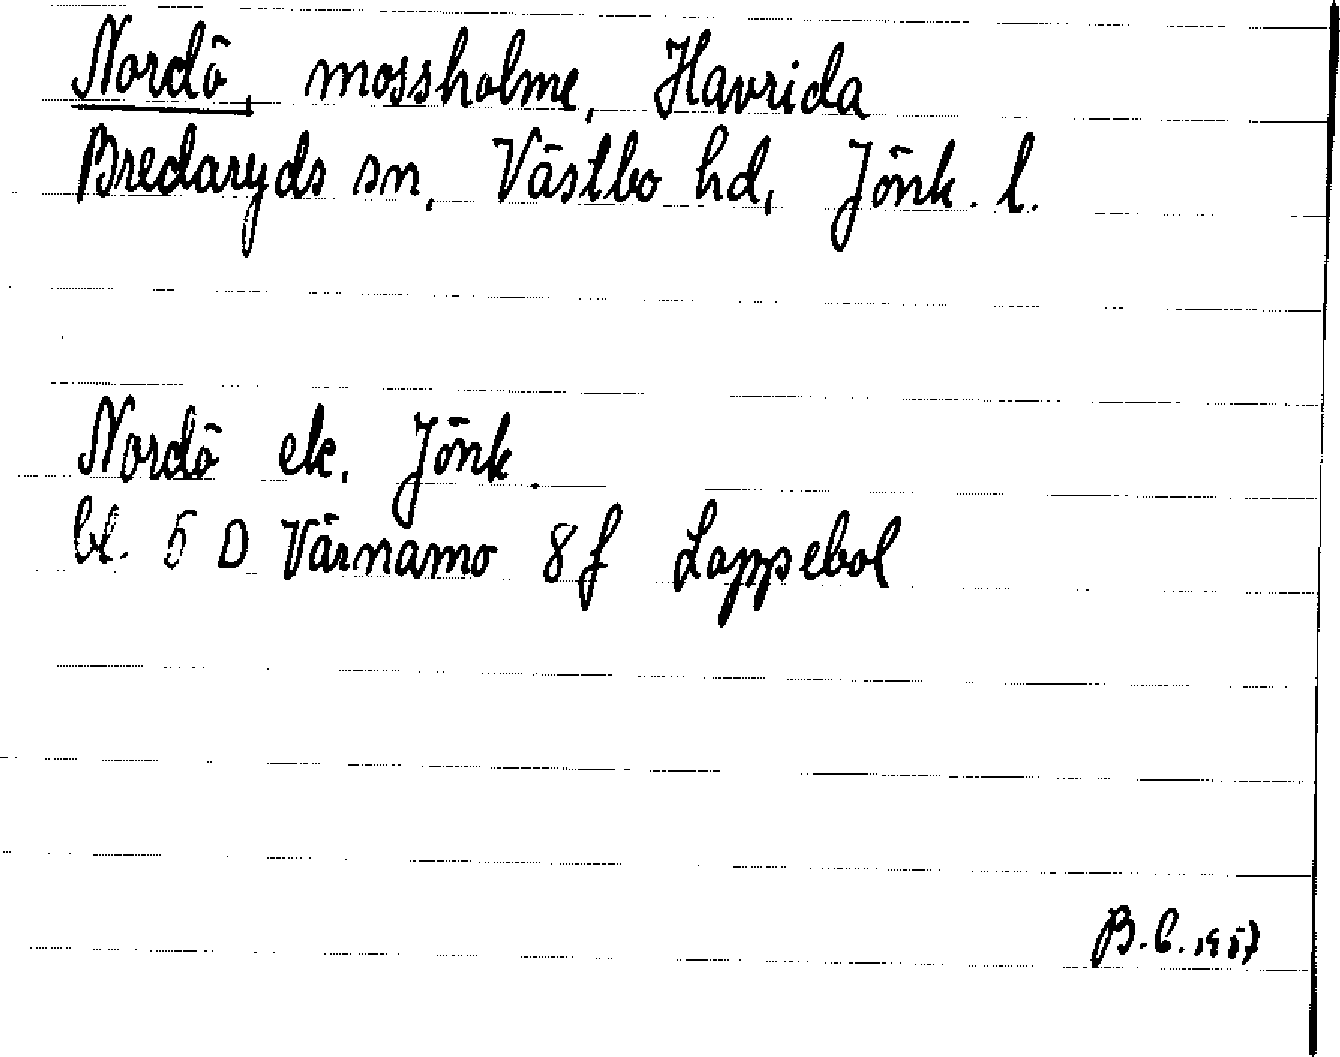 Nordö, mossholme, Havrida
Bredaryds sn, Västbo hd, Jönk. l.
Nordö ek. Jönk.
bl. 5 D Värnamo 8f Loppebol
B.C. 1957